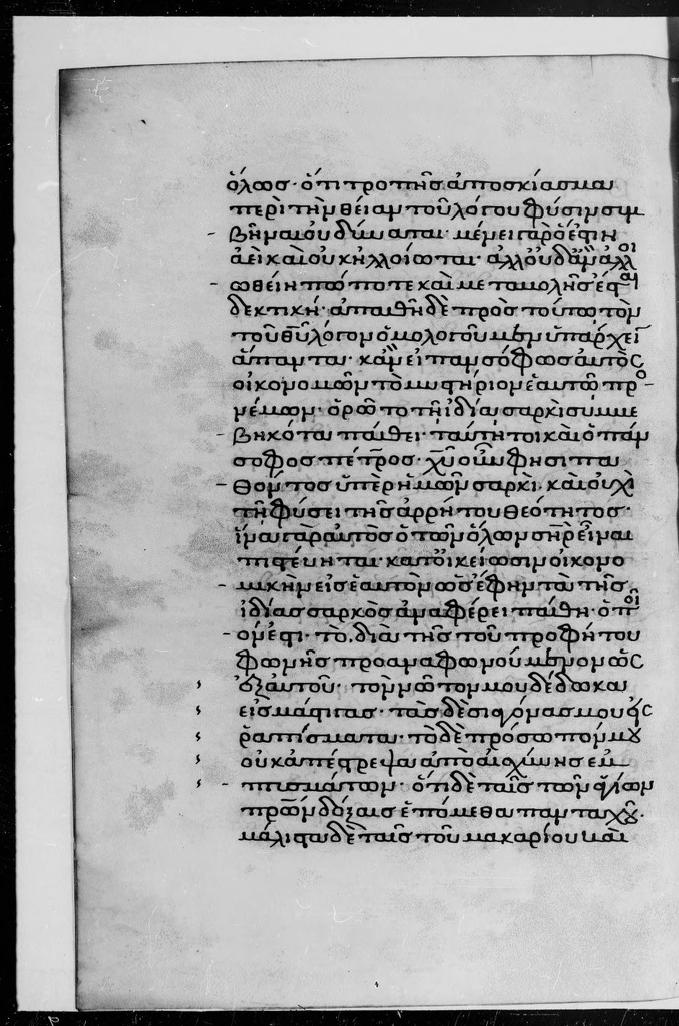 ὅλως· ὅτι τροπῆς ἀποσκίασμα
περὶ τὴν θείαν τοῦ λόγου φύσιν συμ
βῆναι οὐ δύναται· μένει γὰρ ὅ ἐστιν
ἀεὶ καὶ οὐκ ἠλλοίωται· ἀλλ' οὐδ' ἂν ἀλλοι
ωθείη πώποτε καὶ μεταβολῆς ἔσται
δεκτική· ἀπαθῆ δὲ πρὸς τούτω τὸν
τοῦ θυ λόγον ὁμολογοῦμεν ὑπάρχειν
ἅπαντα· κἂν εἰ πανσόφως αὐτὸς
οἰκονομῶν τὸ μυστήριον ἑαυτῶ προσ
νέμων· ὁρῶτο τῆ ἰδία σαρκὶ συμβε
βηκότα πάθει· ταύτη τοι καὶ ὁ παν
σοφος πέτρος· χυ οὖν φησι πα
θόντος ὑπὲρ ἡμῶν σαρκὶ· καὶ οὐχὶ
τῆ φύσει τῆς ἀρρήτου θεότητος·
ἵνα γὰρ αὐτὸς ὁ τῶν ὅλων σηρ εἶναι
πιστεύηται· κατ' οἰκείωσιν οἰκονο
μικὴν εἰς ἑαυτὸν ὡς ἔφην τὰ τῆς
ἰδίας σαρκὸς ἀναφέρει πάθη· ὁποῖ
ον ἐστι· τὸ διὰ τῆς τοῦ προφήτου
φωνῆς προαναφωνούμενον ὡς
ἐξ αὐτοῦ· τὸν νῶτον μου δέδωκα
εἰς μάστιγας· τὰς δὲ σιαγόνας μου εἰς
ῥαπίσματα· τὸ δὲ πρόσωπόν μου
οὐκ ἀπέστρεψα ἀπὸ αἰσχύνης ἐμ
πτυσμάτων· ὅτι δὲ ταῖς τῶν ἁγίων
πρῶν δόξαις ἑπόμεθα πανταχοῦ·
μάλιστα δὲ ταῖς τοῦ μακαρίου καὶ